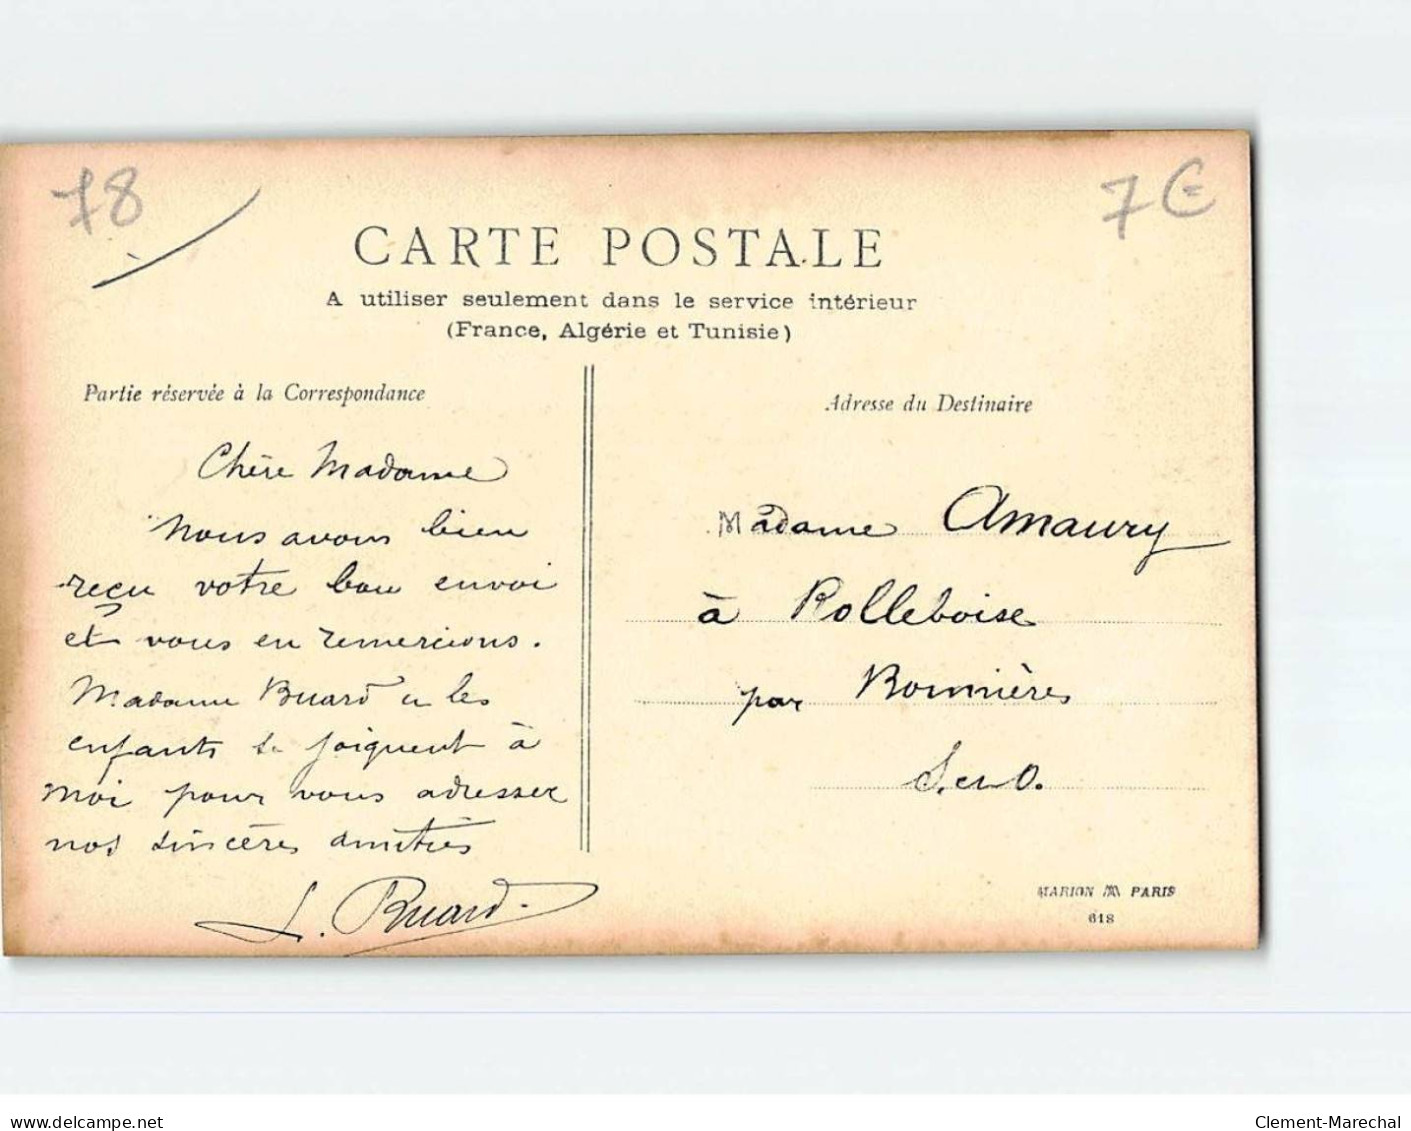 78
7€
CARTE POSTALE
A utiliser seulement dans le service intérieur
(France, Algérie et Tunisie)
Partie réservée à la Correspondance
Chère Madame
Nous avons bien
reçu votre bon envoi
et vous en remercions.
Madame Buard et les
enfants se joignent à
moi pour vous adresser
nos sincères amitiés
L. Buard.
Adresse du Destinaire
Madame Amaury
à Rolleboise
par Bonnières
S. et O.
MARION PARIS
618
delcampe.net
Clement-Marechal